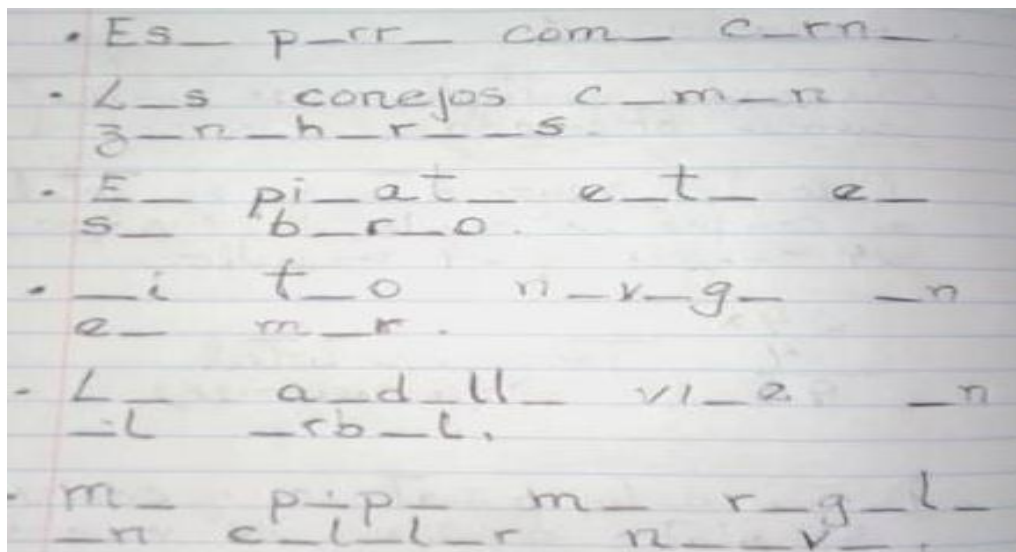 • Es_ p_rr_ com_ c_rn_.
• L_s conejos c_m_n
z_n_h_r_ _s.
• E_ pi_at_ e_t_ e_
s_ b_r_o.
• _i t_o n_v_g_ _n
e_ m_r.
- L_ a_d_ll_ vi_e _n
_l _rb_l.
- m_ p_p_ m_ r_g_l_
_n c_l_l_r n_ _v_.